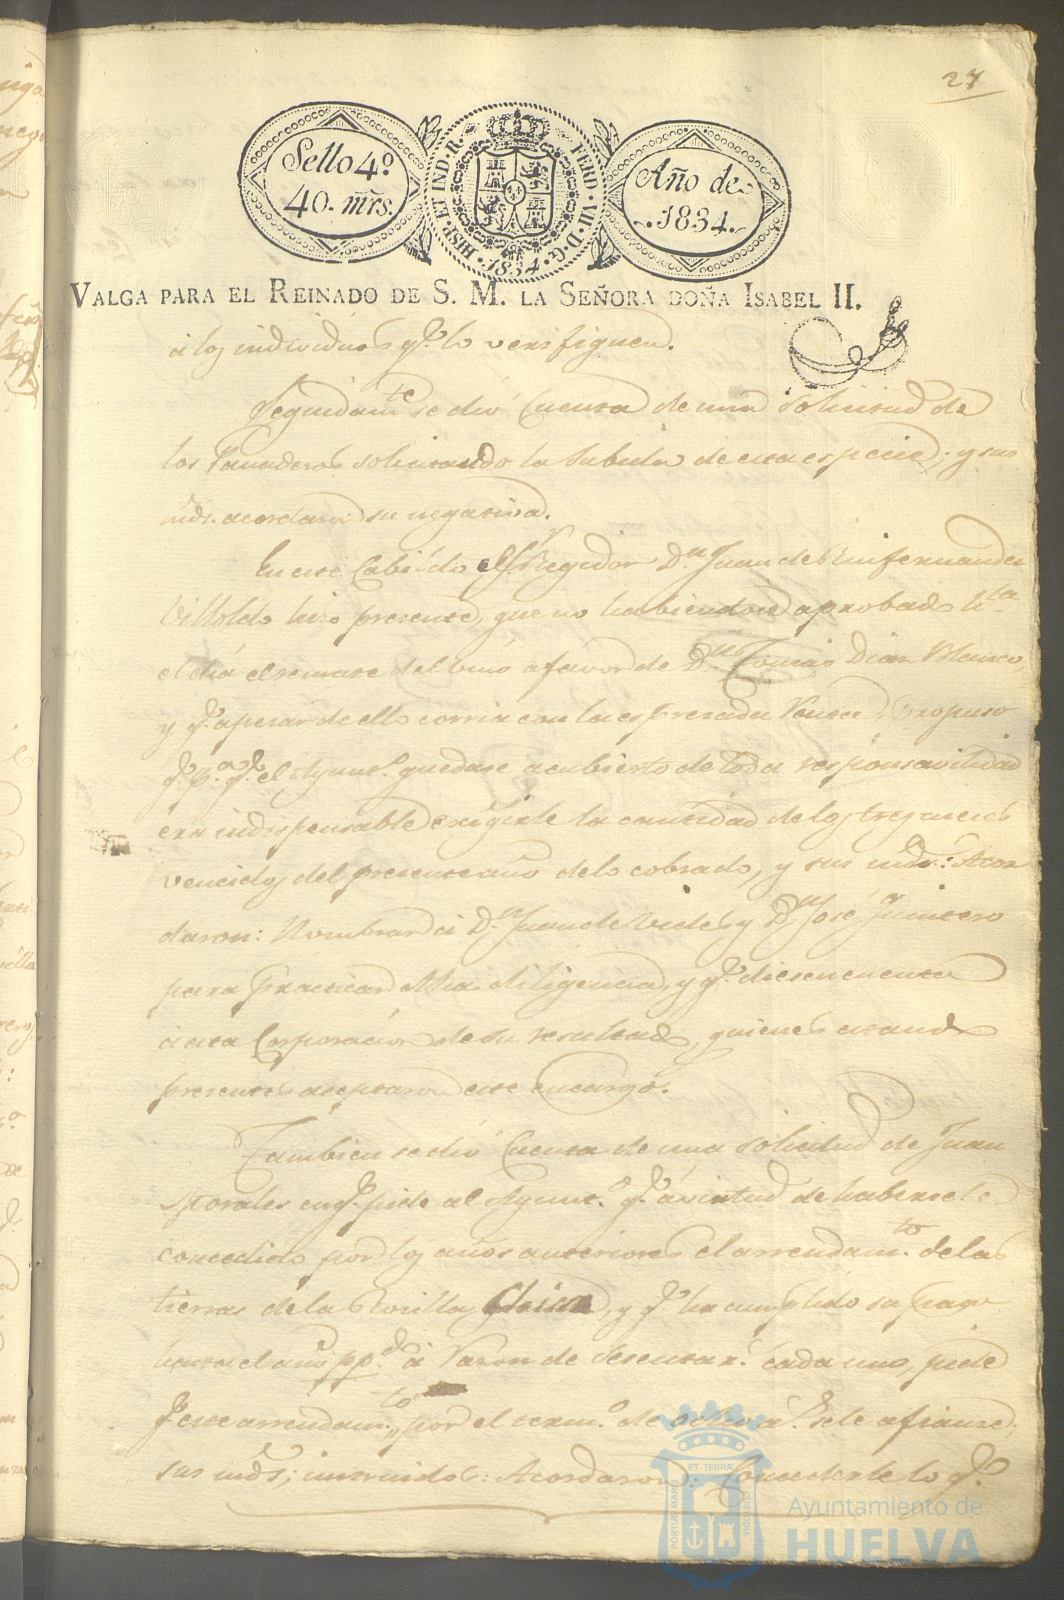 27
Sello 4º
40. mrs.
HISP. ET IND. R. FERD. VII. D. G. 1834.
Año de
1834.
VALGA PARA EL REINADO DE S. M. LA SEÑORA DOÑA ISABEL II.
á los individuos qe. lo verifiquen.
Seguidamte. se dió Cuenta de una solicitud de
los Panaderos solicitando la subida de esta especie; y sus
mds. acordaron su negativa.
En este Cabildo el Sr. Regidor Dn. Juan de
hizo presente, que no habiendose aprobado hta.
el dia el remate del vino a favor de Dn. Tomas Diaz Blanco,
y qe. apesar de ello corria con la espresada Venta, propuso
qe. pa. qe. el Ayunto. quedase a cubierto de toda responsavilidad
era indispensable exigirle la cantidad de los tres meses
vencidos del presente año de lo cobrado, y sus mds.: Acor
daron: Nombrar á Dn. Juan de Vides y Dn. José Quintero
para practicar dha diligencia, y qe. diesen cuenta
á esta Corporacion de su resultado, quienes estando
presentes aceptaron este encargo.
Tambien se dió Cuenta de una solicitud de Juan
Morales en qe. pide al Ayunto. qe. á virtud de habersele
concedido por los años anteriores el arrendamto. de las
tierras de la Morilla, y qe. ha cumplido su pago
hasta el año pp.do á razon de sesenta rs. cada uno, pide
qe. este arrendamto. por el termo. de ocho as. se le afianze;
sus mds.; instruidos: Acordaron: Concederle lo qe.
PORTUS MARIS ET TERRÆ CUSTODIA
Ayuntamiento de
HUELVA